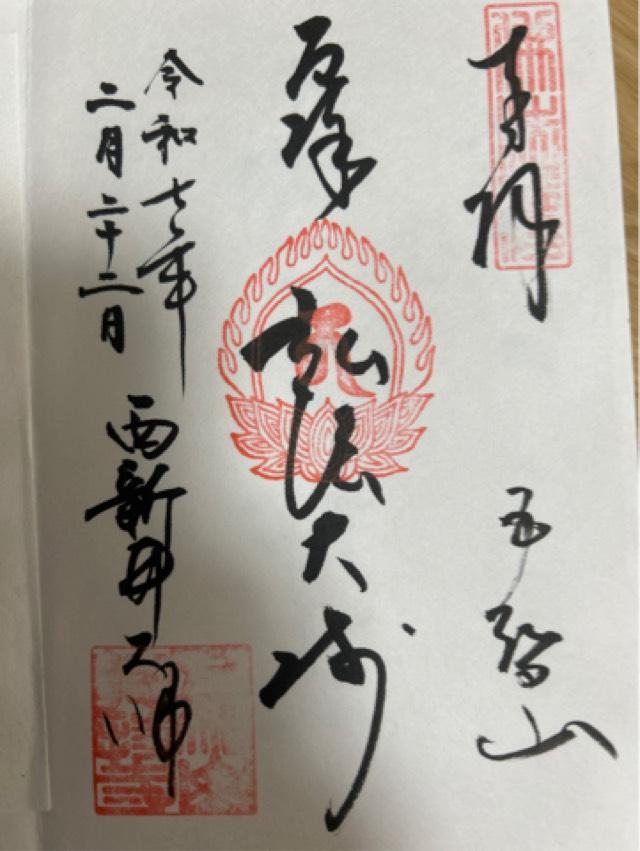 奉拝
五智山
厄除
弘法大師
令和七年
二月二十二日
西新井大師